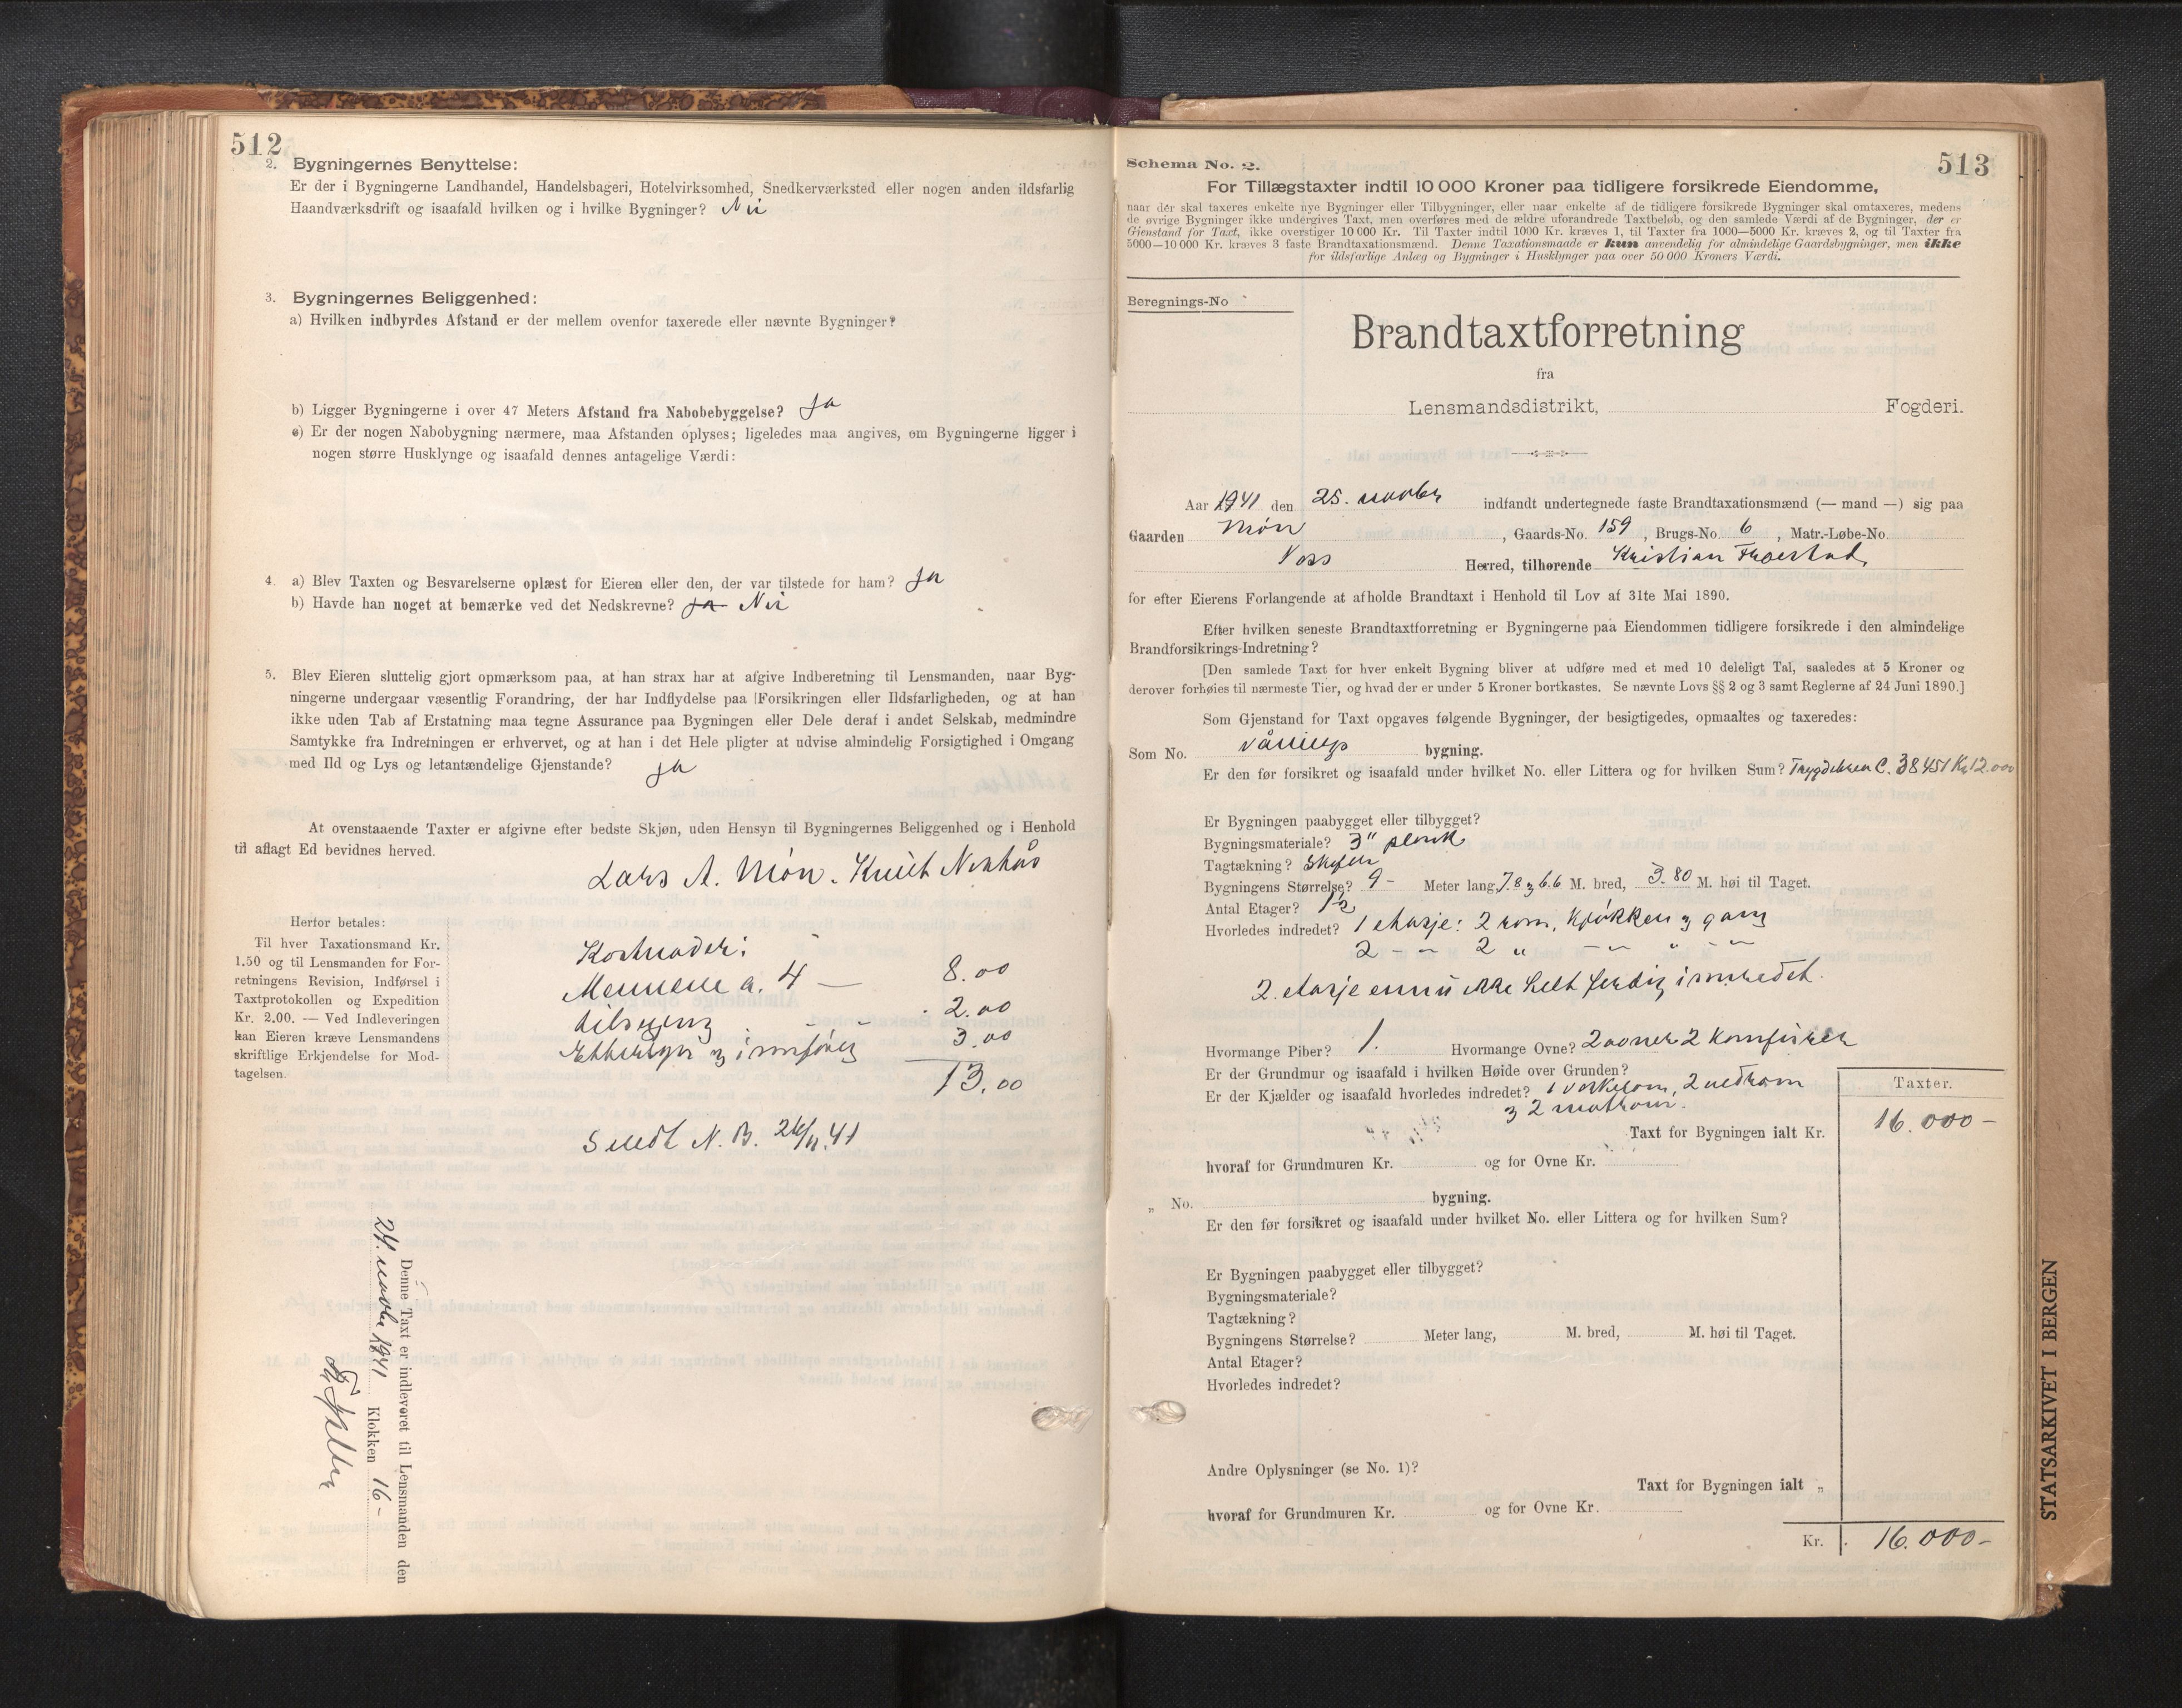 512
2. Bygningernes Benyttelse:
Er der i Bygningerne Landhandel, Handelsbageri, Hotelvirksomhed, Snedkerværksted eller nogen anden ildsfarlig
Haandværksdrift og isaafald hvilken og i hvilke Bygninger? Nei
3. Bygningernes Beliggenhed:
a) Hvilken indbyrdes Afstand er der mellem ovenfor taxerede eller nævnte Bygninger?
b) Ligger Bygningerne i over 47 Meters Afstand fra Nabobebyggelse? Ja
c) Er der nogen Nabobygning nærmere, maa Afstanden oplyses; ligeledes maa angives, om Bygningerne ligger i
nogen større Husklynge og isaafald dennes antagelige Værdi:
4. a) Blev Taxten og Besvarelserne oplæst for Eieren eller den, der var tilstede for ham? Ja
b) Havde han noget at bemærke ved det Nedskrevne? Ja Nei
5. Blev Eieren sluttelig gjort opmærksom paa, at han strax har at afgive Indberetning til Lensmanden, naar Byg-
ningerne undergaar væsentlig Forandring, der har Indflydelse paa Forsikringen eller Ildsfarligheden, og at han
ikke uden Tab af Erstatning maa tegne Assurance paa Bygningen eller Dele deraf i andet Selskab, medmindre
Samtykke fra Indretningen er erhvervet, og at han i det Hele pligter at udvise almindelig Forsigtighed i Omgang
med Ild og Lys og letantændelige Gjenstande? Ja
At ovenstaaende Taxter er afgivne efter bedste Skjøn, uden Hensyn til Bygningernes Beliggenhed og i Henhold
til aflagt Ed bevidnes herved.
Lars A. Møn. Knut
Herfor betales:
Til hver Taxationsmand Kr.
1.50 og til Lensmanden for For-
retningens Revision, Indførsel i
Taxtprotokollen og Expedition
Kr. 2.00. — Ved Indleveringen
kan Eieren kræve Lensmandens
skriftlige Erkjendelse for Mod-
tagelsen.
Kostnader:
Mennene a. 4 — 8.00
2.00
Ettersyn og innføring 3.00
13.00
Sendt N. B. 26/11.41
Denne Taxt er indleveret til Lensmanden den
24. novbr 1941 Klokken 16-
Schema No. 2.
513
For Tillægstaxter indtil 10 000 Kroner paa tidligere forsikrede Eiendomme,
naar der skal taxeres enkelte nye Bygninger eller Tilbygninger, eller naar enkelte af de tidligere forsikrede Bygninger skal omtaxeres, medens
de øvrige Bygninger ikke undergives Taxt, men overføres med de ældre uforandrede Taxtbeløb, og den samlede Værdi af de Bygninger, der er
Gjenstand for Taxt, ikke overstiger 10 000 Kr. Til Taxter indtil 1000 Kr. kræves 1, til Taxter fra 1000—5000 Kr. kræves 2, og til Taxter fra
5000—10 000 Kr. kræves 3 faste Brandtaxationsmænd. Denne Taxationsmaade er kun anvendelig for almindelige Gaardsbygninger, men ikke
for ildsfarlige Anlæg og Bygninger i Husklynger paa over 50 000 Kroners Værdi.
Beregnings-No
Brandtaxtforretning
fra
Lensmandsdistrikt, Fogderi.
Aar 1941 den 25. novbr indfandt undertegnede faste Brandtaxationsmænd (— mand —) sig paa
Gaarden Møn, Gaards-No. 159, Brugs-No. 6, Matr.-Løbe-No.
Voss Herred, tilhørende Kristian
for efter Eierens Forlangende at afholde Brandtaxt i Henhold til Lov af 31te Mai 1890.
Efter hvilken seneste Brandtaxtforretning er Bygningerne paa Eiendommen tidligere forsikrede i den almindelige
Brandforsikrings-Indretning?
[Den samlede Taxt for hver enkelt Bygning bliver at udføre med et med 10 deleligt Tal, saaledes at 5 Kroner og
derover forhøies til nærmeste Tier, og hvad der er under 5 Kroner bortkastes. Se nævnte Lovs §§ 2 og 3 samt Reglerne af 24 Juni 1890.]
Som Gjenstand for Taxt opgaves følgende Bygninger, der besigtigedes, opmaaltes og taxeredes:
Som No. Vånings bygning.
Er den før forsikret og isaafald under hvilket No. eller Littera og for hvilken Sum? C. 38451 Kr 12.000
Er Bygningen paabygget eller tilbygget?
Bygningsmateriale? 3" plank
Tagtækning? Skifer
Bygningens Størrelse? 9- Meter lang, 7.8 og 6.6 M. bred, 3.80 M. høi til Taget.
Antal Etager? 1½
Hvorledes indredet? 1 etasje: 2 rom, kjøkken og gang
2 - " - 2 " - " - " - " -
2. etasje ennu ikke helt ferdig innredet.
Hvormange Piber? 1. Hvormange Ovne? 2 ovner 2 komfirer
Er der Grundmur og isaafald i hvilken Høide over Grunden?
Er der Kjælder og isaafald hvorledes indredet? 1 vaskerom, 2 vedrom
og 2 matrom.
Taxter.
Taxt for Bygningen ialt Kr. 16.000-
hvoraf for Grundmuren Kr. og for Ovne Kr.
„ No. bygning.
Er den før forsikret og isaafald under hvilket No. eller Littera og for hvilken Sum?
Er Bygningen paabygget eller tilbygget?
Bygningsmateriale?
Tagtækning?
Bygningens Størrelse? Meter lang, M. bred, M. høi til Taget.
Antal Etager?
Hvorledes indredet?
Andre Oplysninger (se No. 1)?
Taxt for Bygningen ialt „
hvoraf for Grundmuren Kr. og for Ovne Kr.
Kr. 16.000-
STATSARKIVET I BERGEN